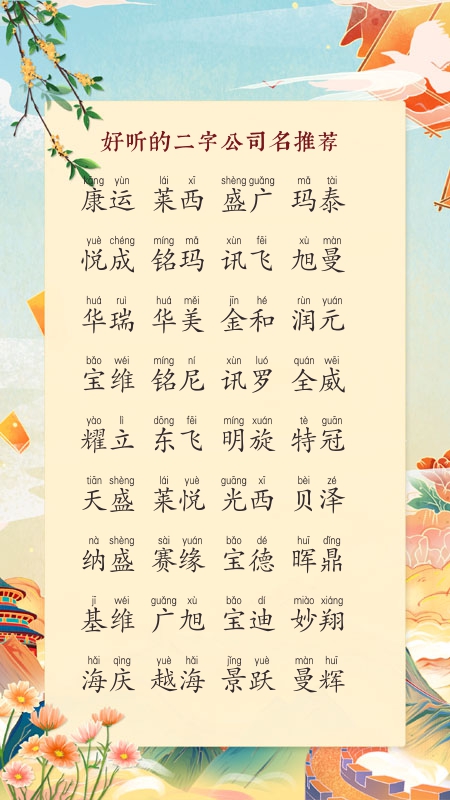 好听的二字公司名推荐
kāng yùn lái xī shèng guǎng mǎ tài
康运 莱西 盛广 玛泰
yuè chéng míng mǎ xùn fēi xù màn
悦成 铭玛 讯飞 旭曼
huá ruì huá měi jīn hé rùn yuán
华瑞 华美 金和 润元
bǎo wéi míng ní xùn luó quán wēi
宝维 铭尼 讯罗 全威
yào lì dōng fēi míng xuán tè guān
耀立 东飞 明旋 特冠
tiān shèng lái yuè guāng xī bèi zé
天盛 莱悦 光西 贝泽
nà shèng sài yuán bǎo dé huī dǐng
纳盛 赛缘 宝德 晖鼎
jī wéi guǎng xù bǎo dí miào xiáng
基维 广旭 宝迪 妙翔
hǎi qìng yuè hǎi jǐng yuè màn huī
海庆 越海 景跃 曼辉